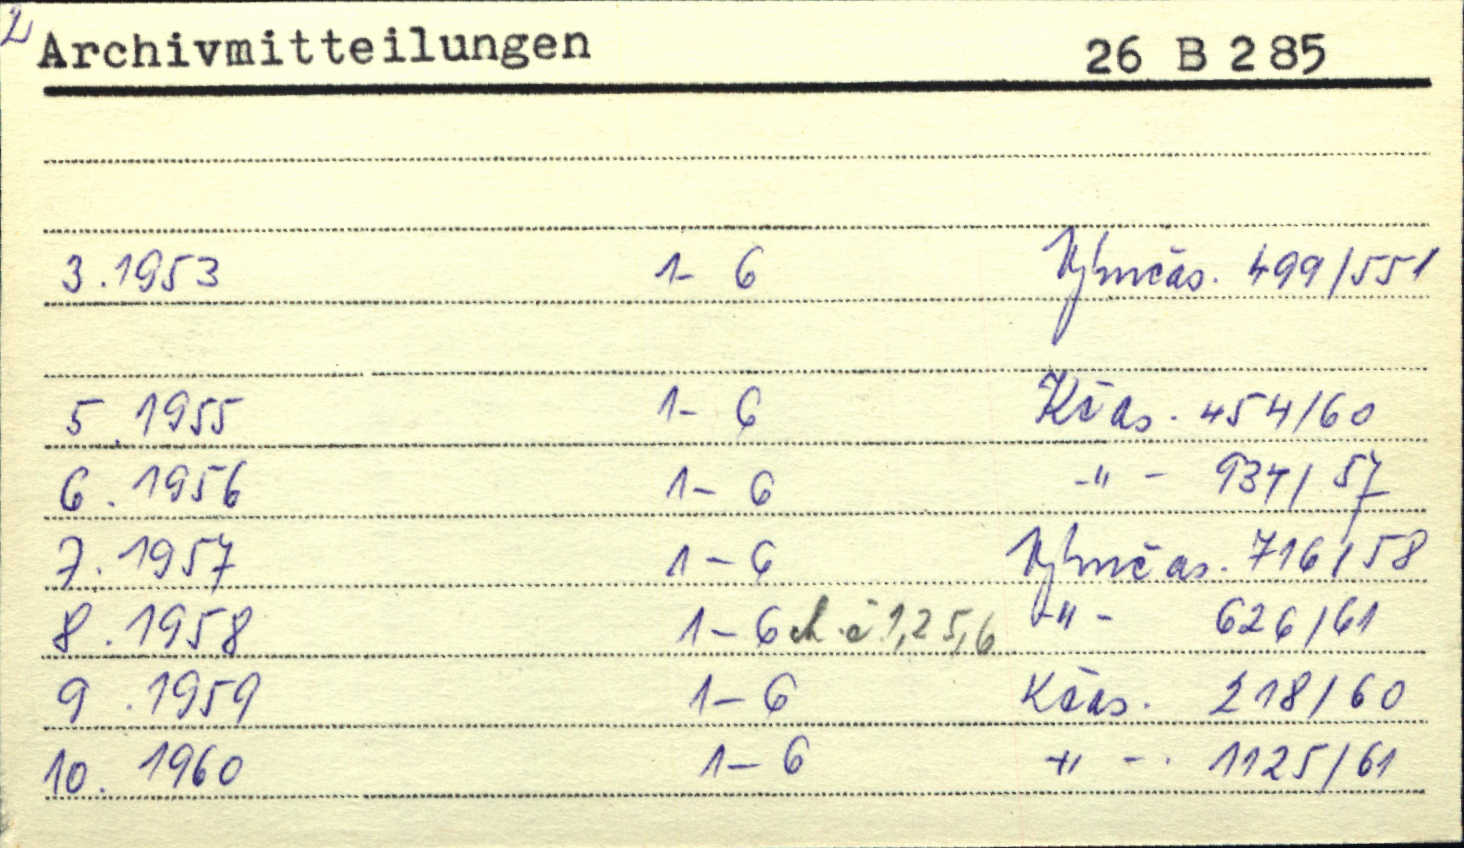 2
Archivmitteilungen 26 B 285
3. 1953 1- 6 Výměčas. 499/551
5. 1955 1- 6 Kčas. 454/60
6. 1956 1- 6 -"- 934/57
7. 1957 1-6 Výměčas. 716/58
8. 1958 1-6 ch.č 1,2 5,6 -"- 626/61
9. 1959 1-6 Kčas. 218/60
10. 1960 1-6 -"- 1125/61